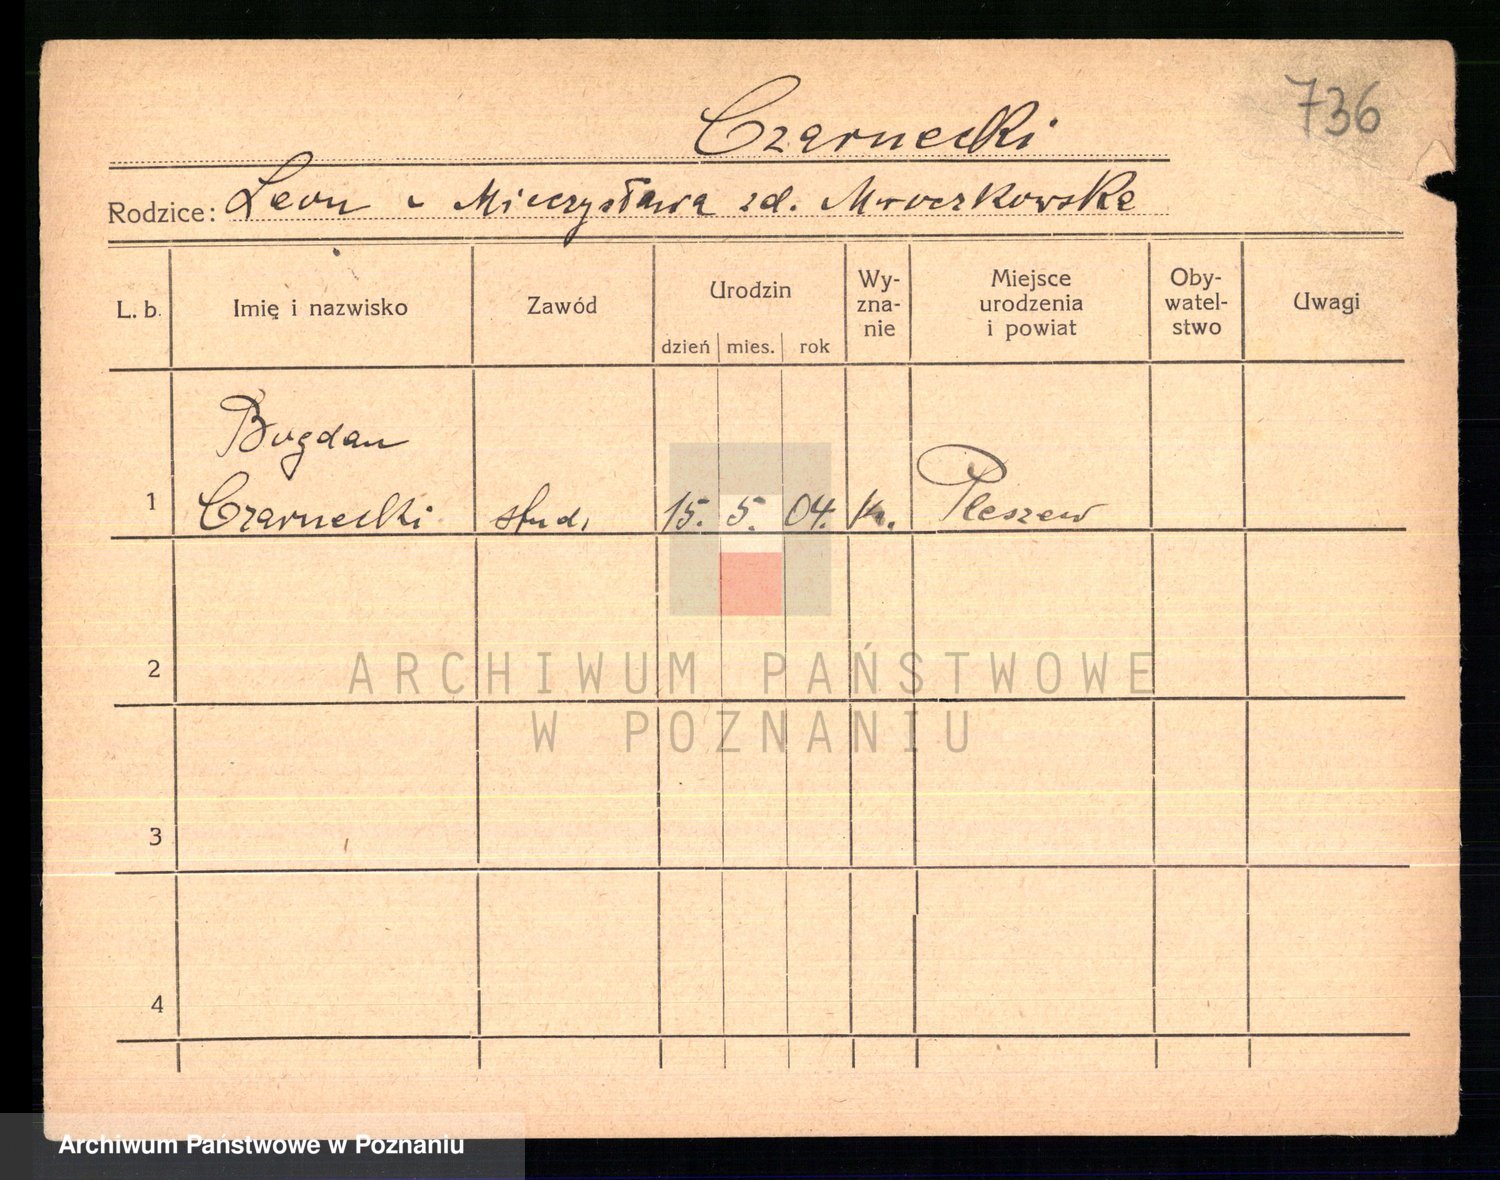 736
Czarnecki
Rodzice: Leon i Mieczysława zd. Mroczkowska
L. b. Imię i nazwisko Zawód Urodzin Wy-zna-nie Miejsce urodzenia i powiat Oby-watel-stwo Uwagi
dzień mies. rok
Bogdan
1 Czarnecki stud. 15. 5. 04. Pleszew
2
ARCHIWUM PAŃSTWOWE
W POZNANIU
3
4
Archiwum Państwowe w Poznaniu